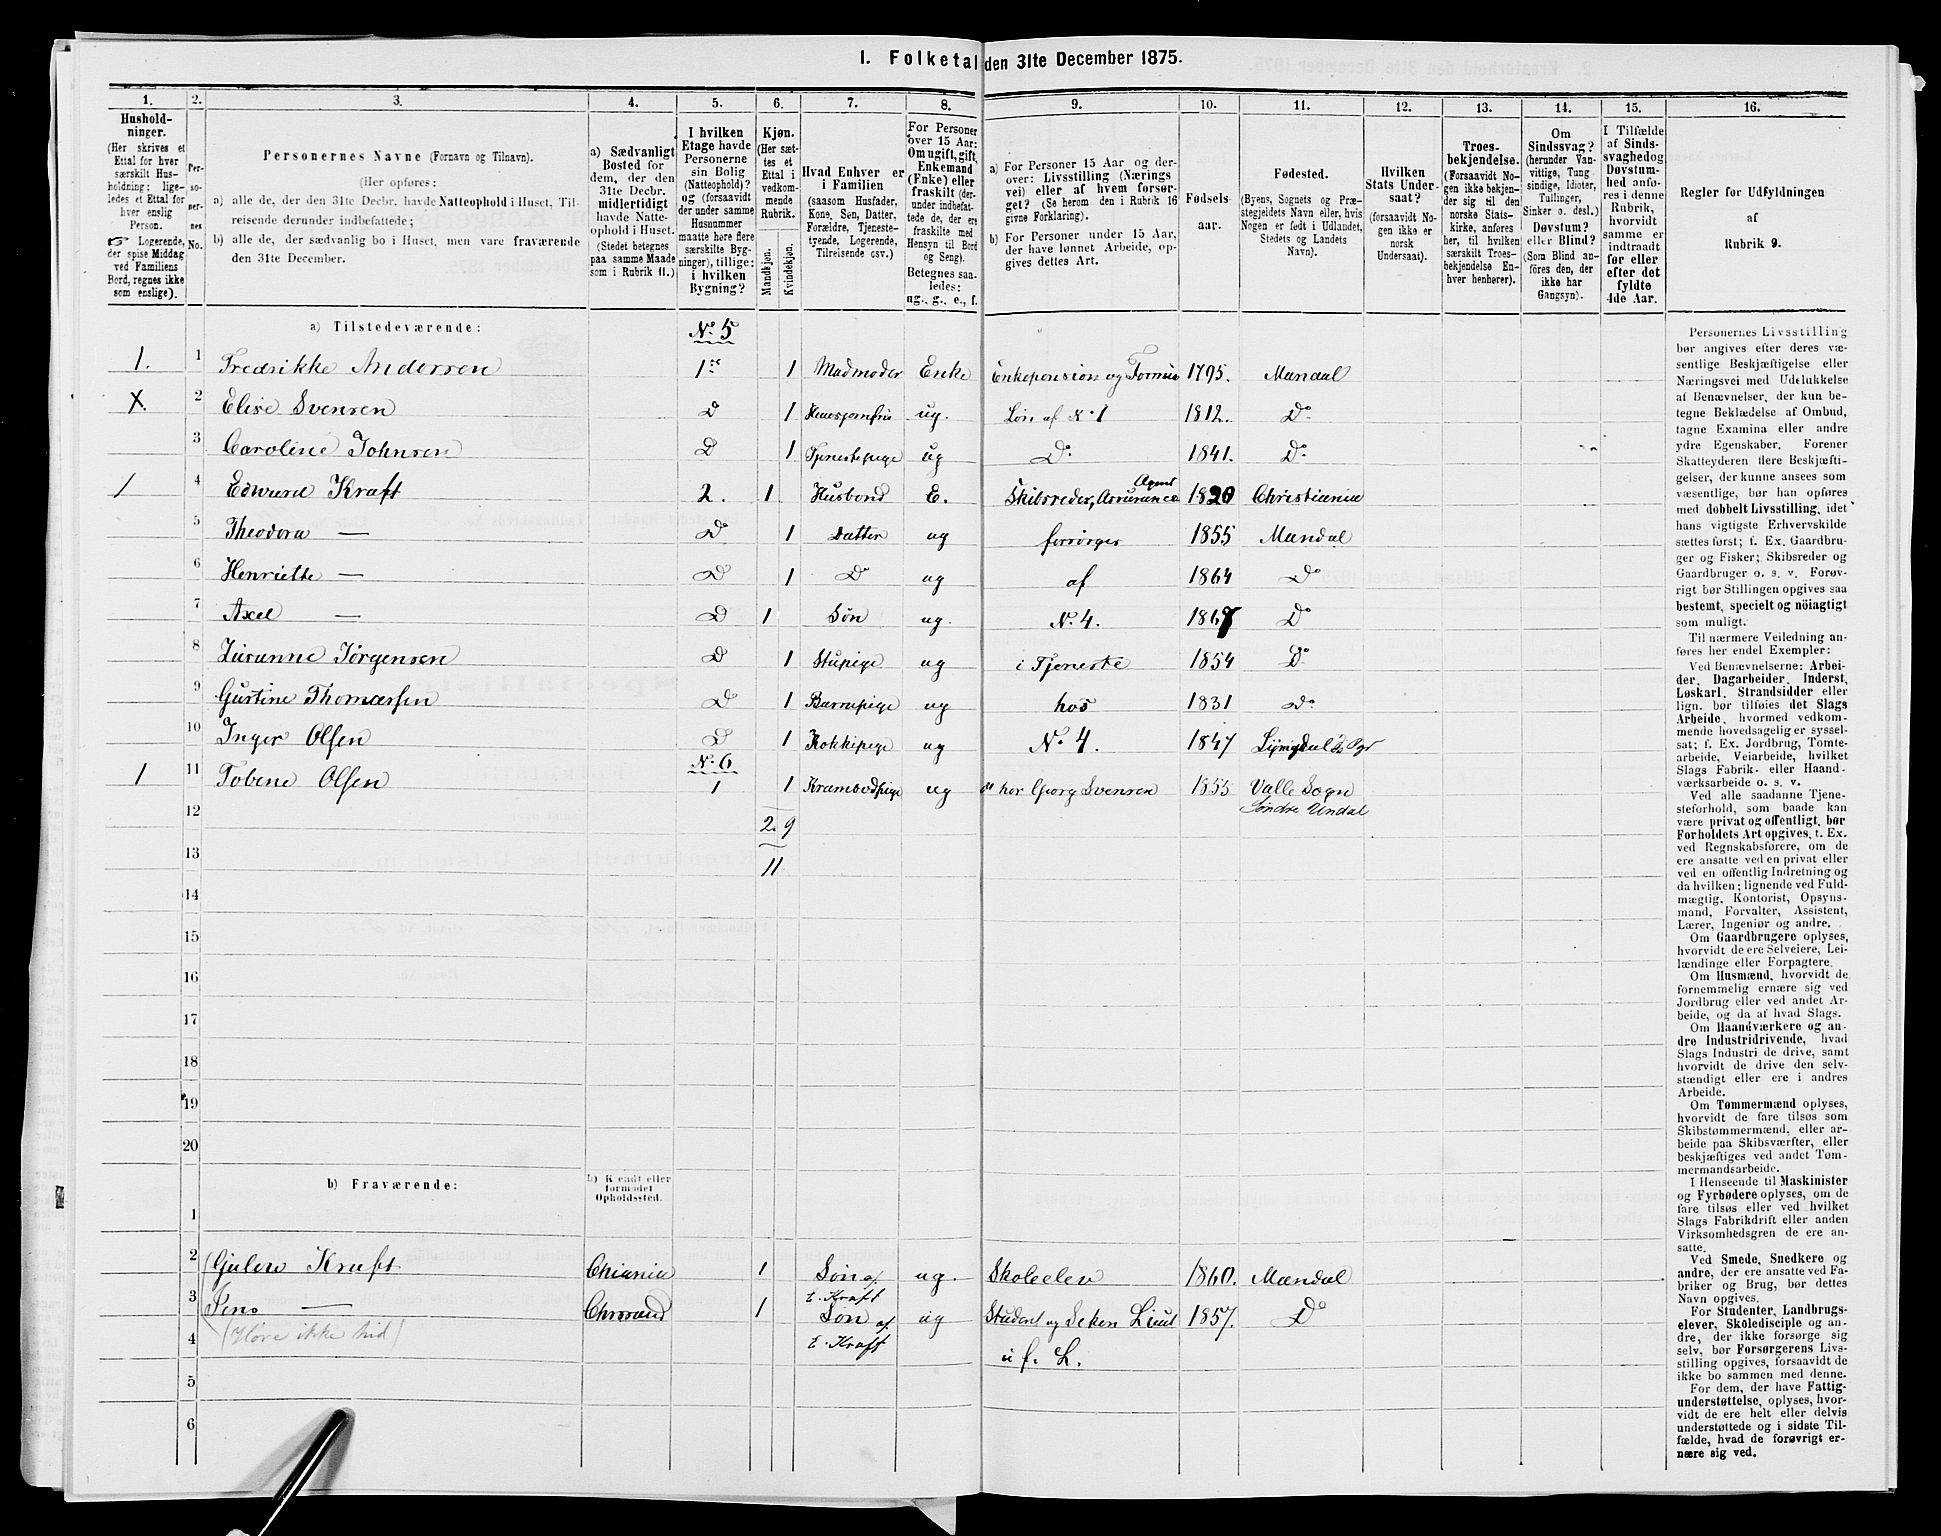 1. Folketal den 31te December 1875.
1. 2. 3. 4. 5. 6. 7. 8. 9. 10. 11. 12. 13. 14. 15. 16.
Hushold-
ninger.
(Her skrives et
Ettal for hver
særskilt Hus-
holdning; lige-
ledes et Ettal for
hver enslig
Person.
☞ Logerende,
der spise Middag
ved Familiens
Bord, regnes ikke
som enslige).
Per-
so-
ner-
nes
No.
Personernes Navne (Fornavn og Tilnavn).
(Her opføres:
a) alle de, der den 31te Decbr. havde Natteophold i Huset, Til-
reisende derunder indbefattede;
b) alle de, der sædvanlig bo i Huset, men vare fraværende
den 31te December.
a) Sædvanligt
Bosted for
dem, der den
31te Decbr.
midlertidigt
havde Natte-
ophold i Huset.
(Stedet betegnes
paa samme Maade
som i Rubrik 11.)
I hvilken
Etage havde
Personerne
sin Bolig
(Natteophold)?
og (forsaavidt
der under samme
Husnummer
maatte høre flere
særskilte Byg-
ninger), tillige:
i hvilken
Bygning?
Kjøn.
(Her sæt-
tes et
Ettal i
vedkom-
mende
Rubrik.
Mandkjøn.
Kvindekjøn.
Hvad Enhver er
i Familien
(saasom Husfader,
Kone, Søn, Datter,
Forældre, Tjeneste-
tyende, Logerende,
Tilreisende csv.)
For Personer
over 15 Aar:
Om ugift, gift,
Enkemand
(Enke) eller
fraskilt (der-
under indbefat-
tede de, der ere
fraskilte med
Hensyn til Bord
og Seng).
Betegnes saa-
ledes:
ug., g., e., f.
a) For Personer 15 Aar og der-
over: Livsstilling (Nærings
vei) eller af hvem forsør-
get? (Se herom den i Rubrik 16
givne Forklaring).
b) For Personer under 15 Aar,
der have lønnet Arbeide, op-
gives dettes Art.
Fødsels-
aar.
Fødested.
(Byens, Sognets og Præ-
stegjeldets Navn eller, hvis
Nogen er født i Udlandet,
Stedets og Landets
Navn).
Hvilken
Stats Under-
saat?
(forsaavidt No-
gen ikke er
norsk
Undersaat).
Troes-
bekjendelse.
(Forsaavidt Nogen ikke bekjen-
der sig til den
norske Stats-
kirke, anføres
her, til hvilken
særskilt Troes-
bekjendelse En-
hver henhører).
Om
Sindssvag?
(herunder Van-
vittige, Tung
sindige, Idioter,
Tullinger,
Sinker o. desl.)
Døvstum?
eller Blind?
(Som Blind an-
føres den, der
ikke har
Gangsyn).
I Tilfælde
af Sinds-
svaghed og
Døvstum-
hed anfø-
res i denne
Rubrik,
hvorvidt
samme er
indtraadt
før eller
efter det
fyldte
4de Aar.
Regler for Udfyldningen
af
Rubrik 9.
a) Tilstedeværende: No. 5
1. 1 Fredrikke Andersen 1ste 1 Madmoder Enke Enkepension og Formue 1795. Mandal
X. 2 Elise Svensen D 1 Huusjomfru ug. Løn af No 1 1812. Do
3 Caroline Johnsen D 1 Tjenestepige ug Do 1841. Do
Agent
1 4 Edvard Kraft 2. 1 Husbond E. Skibsreder, Assurance 1820 Christiania
5 Theodora — D 1 Datter ug forsørges 1855 Mandal
6 Henriette — D 1 D ug af 1864 Do
7 Axel — D 1 Søn ug. No. 4. 1867 Do
8 Susanne Jørgensen D 1 Stupige ug i Tjeneste 1854 Do
9 Gustine Thomassen D 1 Barnepige ug hos 1831 Do
10 Inger Olsen D 1 Kokkepige ug No. 4. 1847
No. 6
1 11 Tobine Olsen 1 1 Krambodpige ug hos Georg Svensen 1855 Valle Sogn
Søndre Undal
12 2. 9
13 11
14
15
16
17
18
19
20
b) Fraværende: b) Kjendt eller
formodet
Opholdssted.
1
2 Gulow Kraft Chiania 1 Søn af ug. Skoleelev 1860. Mandal
E. Kraft
3 Jens — Chrsand 1 Søn af ug Student og Seken Liut 1857. Do
E. Kraft
4 (Høre ikke hid) u f. L.
5
6
Personernes Livsstilling
bør angives efter deres væ-
sentlige Beskjæftigelse eller
Næringsvei med Udelukkelse
af Benævnelser, der kun be-
tegne Beklædelse af Ombud,
tagne Examina eller andre
ydre Egenskaber. Forener
Skatteyderen flere Beskjæfti-
gelser, der kunne ansees som
væsentlige, bør han opføres
med dobbelt Livsstilling, idet
hans vigtigste Erhvervskilde
sættes først; f. Ex. Gaardbru-
ger og Fisker; Skibsreder og
Gaardbruger o. s. v. Forøv-
rigt bør Stillingen opgives saa
bestemt, specielt og nöiagtigt
som muligt.
Til nærmere Veiledning an-
føres her endel Exempler:
Ved Benævnelserne: Arbei-
der, Dagarbeider, Inderst,
Løskarl, Strandsidder eller
lign. bør tilføies det Slags
Arbeide, hvormed vedkom-
mende hovedsagelig er syssel-
sat; f. Ex. Jordbrug, Tomte-
arbeide, Veiarbeide, hvilket
Slags Fabrik- eller Haand-
værksarbeide o. s. v.
Ved alle saadanne Tjene-
steforhold, som baade kan
være privat og offentligt, bør
Forholdets Art opgives, t. Ex.
ved Regnskabsførere, om de
ere ansatte ved en privat eller
ved en offentlig Indretning og
da hvilken; lignende ved Fuld-
mægtig, Kontorist, Opsyns-
mand, Forvalter, Assistent,
Lærer, Ingeniør og andre.
Om Gaardbrugere oplyses,
hvorvidt de ere Selveiere, Lei-
lændinge eller Forpagtere.
Om Husmænd, hvorvidt de
fornemmelig ernære sig ved
Jordbrug eller ved andet Ar-
beide, og da af hvad Slags.
Om Haandværkere og an-
dre Industridrivende, hvad
Slags Industri de drive, samt
hvorvidt de drive den selv-
stændigt eller ere i andres
Arbeide.
Om Tømmermænd oplyses,
hvorvidt de fare tilsøs som
Skibstømmermænd, eller ar-
beide paa Skibsværfter, eller
beskjæftiges ved andet Tøm-
mermandsarbeide.
I Henseende til Maskinister
og Fyrbødere oplyses, om de
fare tilsøs eller ved hvilket
Slags Fabrikdrift eller anden
Virksomhedsgren de ere an-
satte.
Ved Smede, Snedkere og
andre, der ere ansatte ved Fa-
briker og Brug, bør dettes
Navn opgives.
For Studenter, Landbrugs-
elever, Skoledisciple og an-
dre, der ikke forsørge sig
selv, bør Forsørgerens Livs-
stilling opgives, forsaavidt de
ikke bo sammen med denne.
For dem, der have Fattig-
understøttelse, oplyses, hvor-
vidt de ere helt eller delvis
understøttede og i sidste Til-
fælde, hvad de forøvrigt er-
nære sig ved.